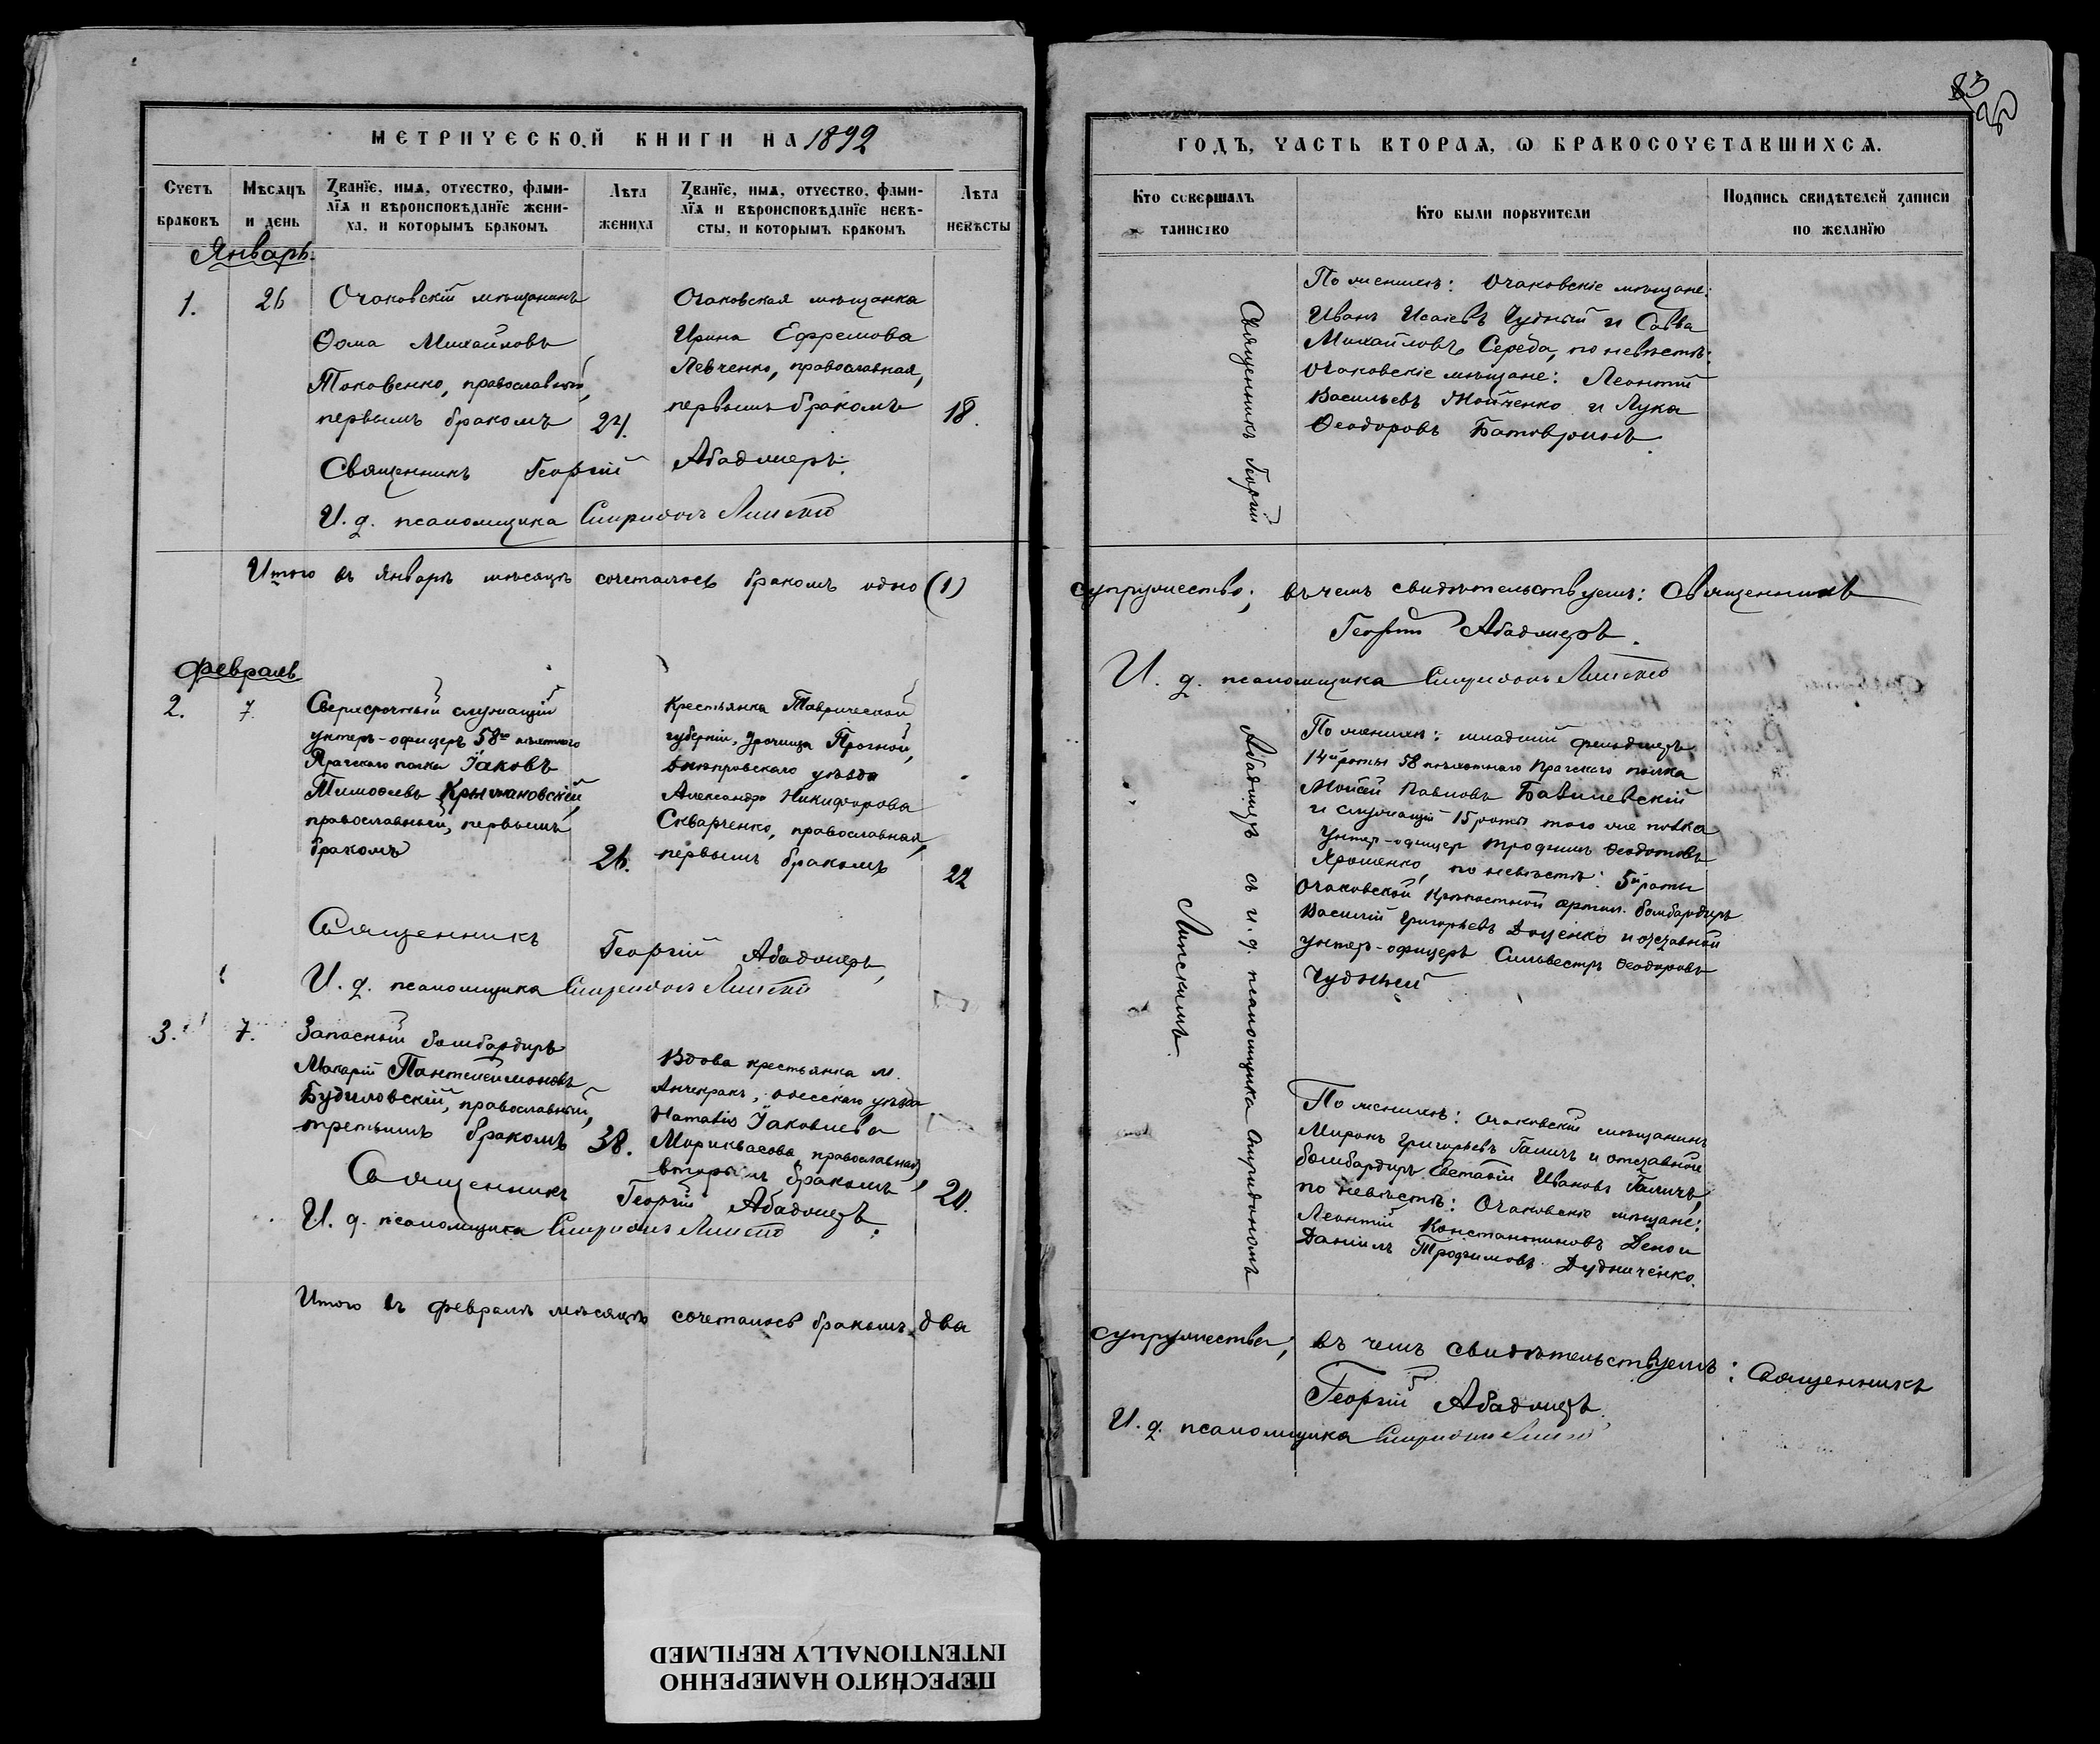 МЕТРИЧЕСКОЙ КНИГИ НА 1892
Счетъ браковъ
Мѣсяцъ и день
Званїе, имя, отчество, фами-
лїя и вѣроисповѣданїе жени-
ха, и которымъ бракомъ
Лѣта жениха
Званїе, имя, отчество, фами-
лїя и вѣроисповѣданїе невѣ-
сты, и которымъ бракомъ
Лѣта невѣсты
Январь.
1.
26
Очаковскій мѣщанинъ
Ѳома Михайловъ
Таковенко, православный,
первымъ бракомъ
24.
Очаковская мѣщанка
Ирина Ефремова
Левченко, православная,
первымъ бракомъ
18.
Священникъ Георгій Абаджеръ.
И. д. псаломщика Спиридонъ Липскій
Итого въ январѣ мѣсяцѣ сочеталось бракомъ одно (1)
Февраль
2.
7.
Сверхсрочный служащій
унтеръ-офицеръ 58го пѣхотнаго
Прагскаго полка Іаковъ
Тимоѳеевъ Крыжановскій,
православный, первымъ
бракомъ
26.
Крестьянка Таврической
губерніи, урочища Прогной,
Днѣпровскаго уѣзда
Александра Никифорова
Скварченко, православная,
первымъ бракомъ
22
Священникъ Георгій Абаджеръ,
И. д. псаломщика Спиридонъ Липскій
3.
7.
Запасный бомбардиръ
Макарій Пантелеимоновъ
Будиловскій, православный,
третьимъ бракомъ
38.
Вдова крестьянка м.
Анчекракъ, одесскаго уѣзда
Наталія Іаковлева
Мориквасова, православная,
вторымъ бракомъ
Священникъ Георгій Абаджеръ.
И. д. псаломщика Спиридонъ Липскій
Итого въ февралѣ мѣсяцѣ сочеталось бракомъ два
ГОДЪ, ЧАСТЬ ВТОРАЯ, Ѡ БРАКОСОЧЕТАВШИХСЯ.
Кто совершалъ таинство
Кто были поручители
Подпись свидѣтелей записи
по желанїю
По женихѣ: очаковскіе мѣщане:
Иванъ Исаіевъ Чудный и Савва
Михайловъ Середа, по невѣстѣ:
очаковскіе мѣщане: Леонтій
Васильевъ Мойченко и Лука
Ѳеодоровъ
Священникъ Георгій
супружество; въ чемъ свидѣтельствуемъ: Священникъ
Георгій Абаджеръ.
И. д. псаломщика Спиридонъ Липскій
По женихѣ: младшій фельдшеръ
14й роты 58 пѣхотнаго Прагскаго полка
Моисей Павловъ Бавилевскій
и служащій 15 роты того же полка
унтер-офицер Трофимъ Ѳеодотовъ
Ярошенко, по невѣстѣ: 5й роты
очаковской крѣпостной артил. бомбардиръ
Василій Григорьевъ Доценко и отставной
унтер-офицеръ Сильвестръ Ѳеодоровъ
Чудный
Абаджеръ съ и. д. псаломщика Спиридономъ
Липскимъ.
По женихѣ: очаковскій мѣщанинъ
Миронъ Григорьевъ Галичъ и отставной
бомбардиръ Евстафій Ивановъ Галичъ,
по невѣстѣ: Очаковскіе мѣщане:
Леонтій Константиновъ и
Даніилъ Трофимовъ Дудниченко.
супружества; въ чемъ свидѣтельствуемъ: Священникъ
Георгій Абаджеръ.
И. д. псаломщика Спиридонъ Липскій
ПЕРЕСНЯТО НАМЕРЕННО
INTENTIONALLY REFILMED